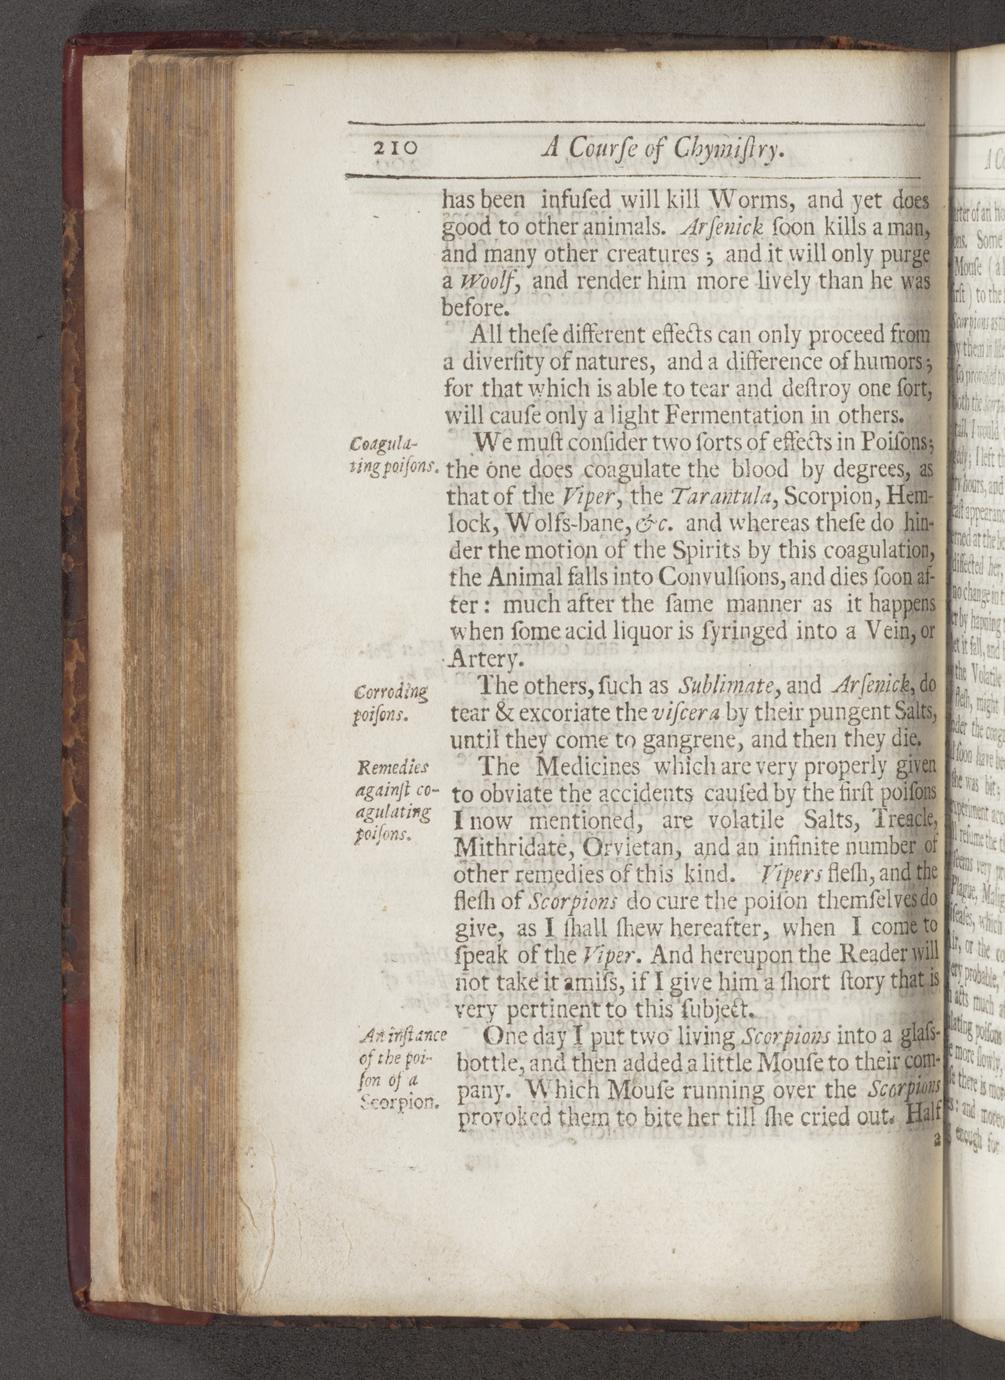 210
A Courſe of Chymiſtry.
has been infuſed will kill Worms, and yet does
good to other animals. Arſenick ſoon kills a man,
and many other creatures; and it will only purge
a Woolf, and render him more lively than he was
before.
All theſe different effects can only proceed from
a diverſity of natures, and a difference of humors;
for that which is able to tear and deſtroy one ſort,
will cauſe only a light Fermentation in others.
Coagula-
ting poiſons.
We muſt conſider two ſorts of effects in Poiſons;
the one does coagulate the blood by degrees, as
that of the Viper, the Tarantula, Scorpion, Hem-
lock, Wolfs-bane, &c. and whereas theſe do hin-
der the motion of the Spirits by this coagulation,
the Animal falls into Convulſions, and dies ſoon af-
ter: much after the ſame manner as it happens
when ſome acid liquor is ſyringed into a Vein, or
Artery.
Corroding
poiſons.
The others, ſuch as Sublimate, and Arſenick, do
tear & excoriate the viſcera by their pungent Salts,
until they come to gangrene, and then they die.
Remedies
againſt co-
agulating
poiſons.
The Medicines which are very properly given
to obviate the accidents cauſed by the firſt poiſons
I now mentioned, are volatile Salts, Treacle,
Mithridate, Orvietan, and an infinite number of
other remedies of this kind. Vipers fleſh, and the
fleſh of Scorpions do cure the poiſon themſelves do
give, as I ſhall ſhew hereafter, when I come to
ſpeak of the Viper. And hereupon the Reader will
not take it amiſs, if I give him a ſhort ſtory that is
very pertinent to this ſubject.
An inſtance
of the poi-
ſon of a
Scorpion.
One day I put two living Scorpions into a glaſs-
bottle, and then added a little Mouſe to their com-
pany. Which Mouſe running over the Scorpions
provoked them to bite her till ſhe cried out. Half
a